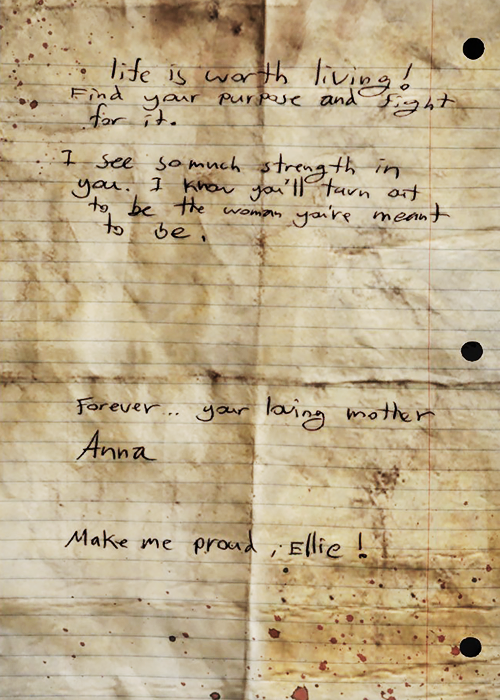 life is worth living!
Find your purpose and fight
for it.
I see so much strength in
you. I know you'll turn out
to be the woman you're meant
to be.
Forever.. your loving mother
Anna
Make me proud, Ellie!